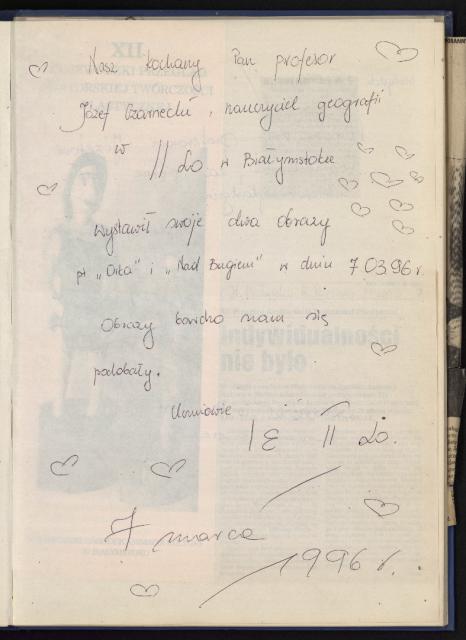 Nasz kochany Pan profesor
Józef Czarnecki, nauczyciel geografii
w II LO w Białymstoku
wystawił swoje dwa obrazy
pt „Orka" i „Nad Bugiem" w dniu 7 03 96 r.
Obrazy bardzo nam się
podobały.
Uczniowie
I E II LO.
7 marca
1996 r.
XII
indywidualności
nie było